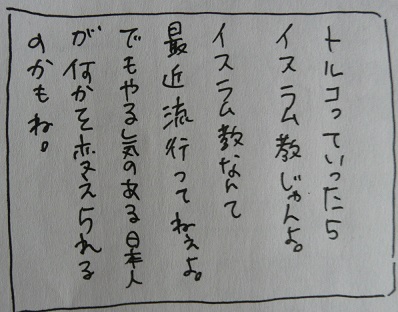 トルコっていったら
イスラム教じゃんよ。
イスラム教なんて
最近流行ってねぇよ。
でもやる気のある日本人
が何かを変えられる
のかもね。